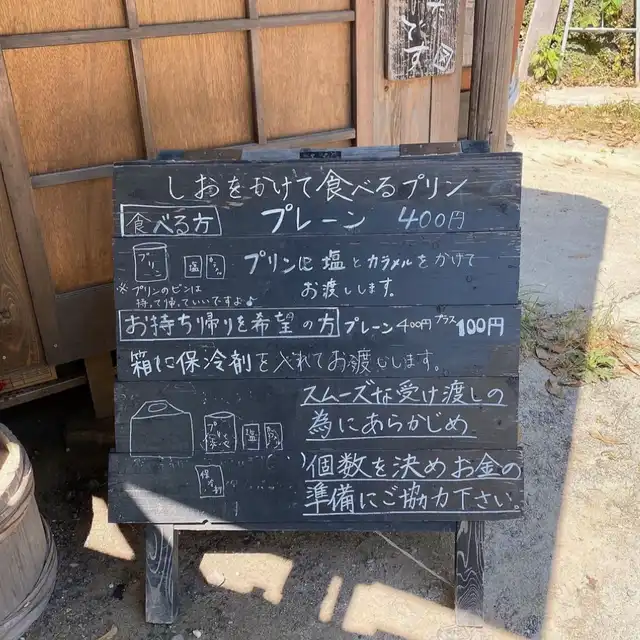 です
しおをかけて食べるプリン
食べる方 プレーン 400円
プリン 塩
プリンに塩とカラメルをかけて
お渡しします。
※プリンのビンは
持って帰っていいですよ♪
お持ち帰りを希望の方 プレーン400円 プラス 100円
箱に保冷剤を入れてお渡しします。
スムーズな受け渡しの
為にあらかじめ
塩
保冷剤
個数を決めお金の
準備にご協力下さい。